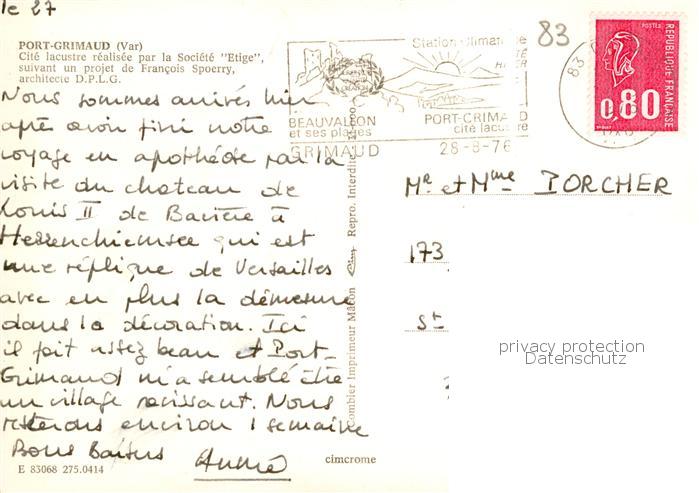 le 27
PORT-GRIMAUD (Var)
Cité lacustre réalisée par la Société "Etige",
suivant un projet de François Spoerry,
architecte D.P.L.G.
Nous sommes arrivés hier
après avoir fini notre
voyage en apothéose par la
visite du chateau de
Louis II de Bavière à
Herrenchiemsee qui est
une réplique de Versailles
avec en plus la démesure
dans la décoration. Ici
il fait assez beau et Port-
Grimaud m'a semblé être
un village ravissant. Nous
resterons environ 1 semaine
Bons Baisers
E 83068 275.0414
cimcrome
Combier Imprimeur Mâcon
Repro. Interdite
Station Climatique
BEAUVALLON
et ses plages
GRIMAUD
PORT-GRIMAUD
cité lacustre
28-8-76
83
POSTES
REPUBLIQUE FRANÇAISE
0,80
Mr et Mme PORCHER
173
St
privacy protection
Datenschutz